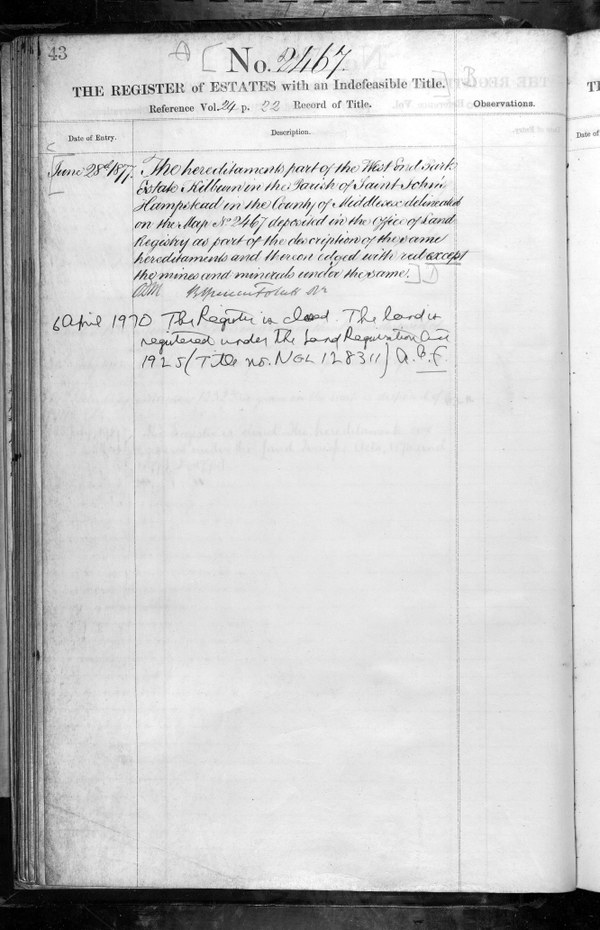 43
A [ No. 2467.
THE REGISTER of ESTATES with an Indefeasible Title. ] B
Reference Vol. 24 p. 22 Record of Title.
Observations.
Date of Entry.
Description.
June 28th 1877.
The hereditaments part of the West End Park
Estate Kilburn in the Parish of Saint John
Hampstead in the County of Middlesex delineated
on the Map No 2467 deposited in the Office of Land
Registry as part of the description of the same
hereditaments and thereon edged with red except
the mines and minerals under the same. ] D
6 April 1970 The Register is closed. The land is
registered under the Land Registration Act
1925 (Title no. NGL 128311)
Date of